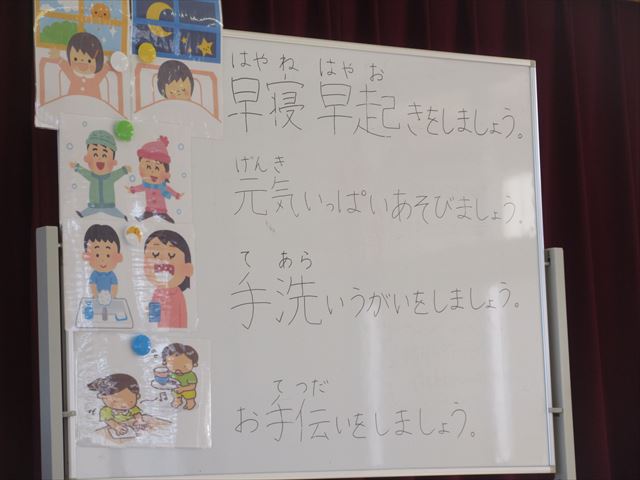 はや ね はや お
早寝 早起きをしましょう。
げんき
元気いっぱいあそびましょう。
て あら
手洗いうがいをしましょう。
て つだ
お手伝いをしましょう。